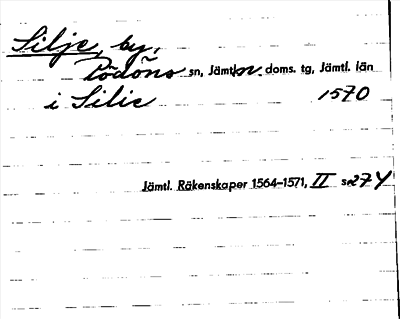 Silje, by,
Rödöns sn, Jämtl. n. doms. tg, Jämtl. län
i Silie 1570
Jämtl. Räkenskaper 1564-1571, II s. 274